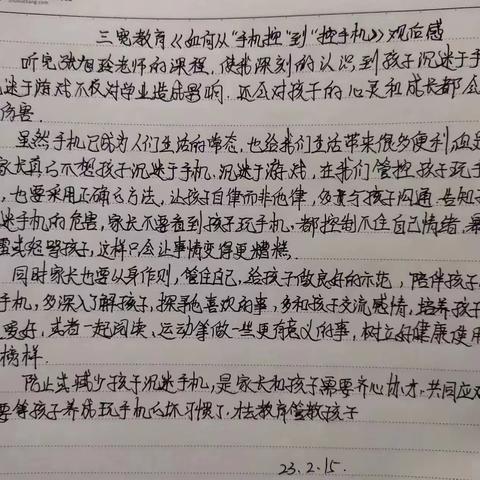 三宽教育《如何从“手机控”到“控手机》观后感
听完张旭玲老师的课程,使我深刻的认识到孩子沉迷于手
迷于游戏不仅对学业造成影响,还会对孩子的心灵和成长都会
伤害.
虽然手机已成为人们生活的常态,也给我们生活带来很多便利但是
家长真的不想孩子沉迷于手机,沉迷于游戏,在我们管控孩子玩手
,也要采用正确的方法,让孩子自律而非他律,多责与孩子沟通,告知子
迷手机的危害,家长不要看到孩子玩手机,都控制不住自己情绪,
骂孩子,这样只会让事情变得更糟糕.
同时家长也要以身作则,管住自己,给孩子做良好的示范,陪伴孩子
手机,多深入了解孩子,探寻他喜欢的事,多和孩子交流感情,培养孩子
爱好,或者一起阅读、运动等做一些更有意义的事,树立好健康使用
榜样.
防止或减少孩子沉迷手机,是家长和孩子需要齐心协力,共同应对
要等孩子养成玩手机的坏习惯了,才去教育管教孩子
23.2.15.